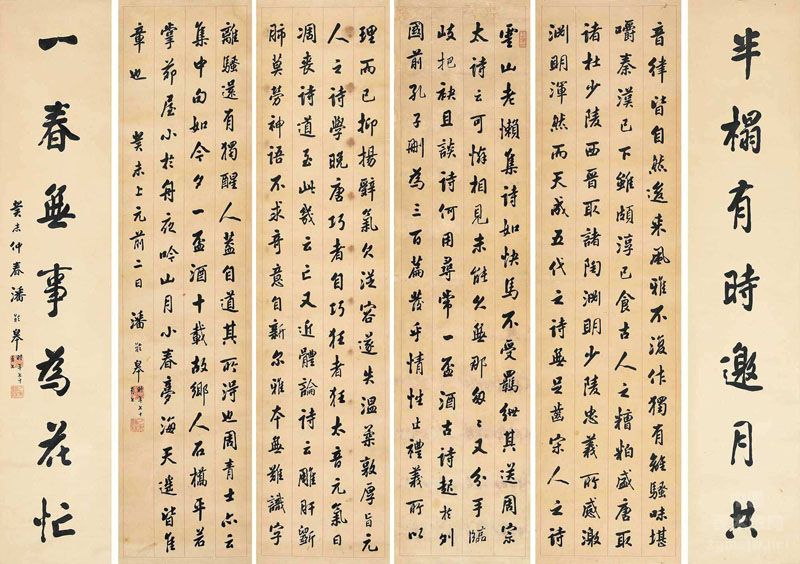 半榻有時邀月共
音律皆自然後來風雅不復作獨有離騷味堪
嚼秦漢已下雖頗淳已食古人之糟粕盛唐取
諸杜少陵西晉取諸陶淵明少陵忠義所感激
淵明渾然而天成五代之詩無足齒宋人之詩
雲山老懶集詩如快馬不受羈紲其送周宗
太詩云可憐相見未能久無那匆匆又分手臨
歧把袂且談詩何用尋常一盃酒古詩起於列
國前孔子刪為三百篇發乎情性止禮義所以
理而已抑揚辭氣欠從容遂失溫柔敦厚旨元
人之詩學晚唐巧者自巧狂者狂太音元氣日
凋喪詩道至此幾云亡又近體論詩云雕肝斲
肺莫勞神語不求奇意自新爾雅本無難識字
離騷還有獨醒人蓋自道其所得也周青士亦云
集中句如今夕一盃酒十載故鄉人石橋平若
掌茆屋小於舟夜吟山月小春夢海天遙皆佳
章也 癸未上元前二日 潘齡皋 時年七十
一春無事為花忙
癸未仲春潘齡皋 時年七十